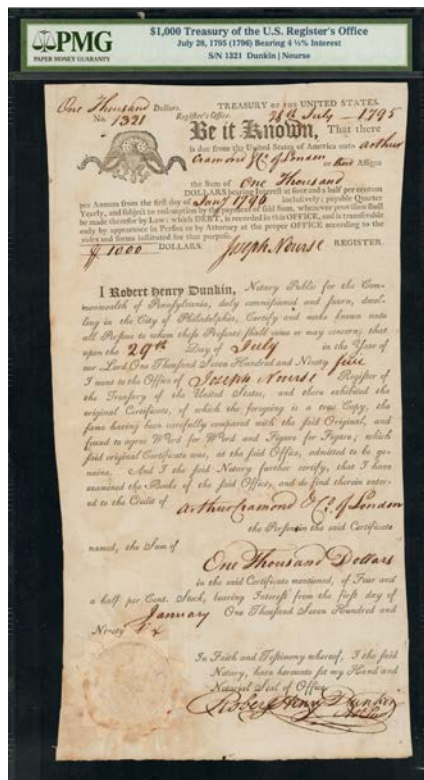 $1,000 Treasury of the U.S. Register's Office
July 28, 1795 (1796) Bearing 4 ½% Interest
S/N 1321 Dunkin | Nourse
PMG
PAPER MONEY GUARANTY
One Thousand Dollars.
No. 1321
TREASURY OF THE UNITED STATES.
Register's Office. 28th July 1795
Be it Known, That there
is due from the United States of America unto Arthur
Cramond & Co. of London or their Assigns
the Sum of One Thousand
DOLLARS bearing Interest at four and a half per centum
per Annum from the first day of Jany 1796 inclusively; payable Quarter
Yearly, and subject to redemption by the payment of said Sum, whenever provision shall
be made therefor by Law: which DEBT, is recorded in this OFFICE, and is transferable
only by appearance in Person or by Attorney at the proper OFFICE according to the
rules and forms instituted for that purpose.
$ 1000 DOLLARS. Joseph Nourse REGISTER.
I Robert Henry Dunkin, Notary Public for the Com-
monwealth of Pennsylvania, duly commissioned and sworn, dwel-
ling in the City of Philadelphia, Certify and make known unto
all Persons to whom these Presents shall come or may concern; that
upon the 29th Day of July in the Year of
our Lord One Thousand Seven Hundred and Ninety five
I went to the Office of Joseph Nourse Register of
the Treasury of the United States, and there exhibited the
original Certificate, of which the foregoing is a true Copy, the
same having been carefully compared with the said Original, and
found to agree Word for Word and Figure for Figure; which
said original Certificate was, at the said Office, admitted to be ge-
nuine. And I the said Notary further certify, that I have
examined the Books of the said Office, and do find therein enter-
ed to the Credit of Arthur Cramond & Co. of London
the Persons in the said Certificate
named, the Sum of
One Thousand Dollars
in the said Certificate mentioned, of Four and
a half per Cent. Stock, bearing Interest from the first day of
January One Thousand Seven Hundred and
Ninety Six
In Faith and Testimony whereof, I the said
Notary, have hereunto set my Hand and
Notarial Seal of Office
Robert Henry Dunkin